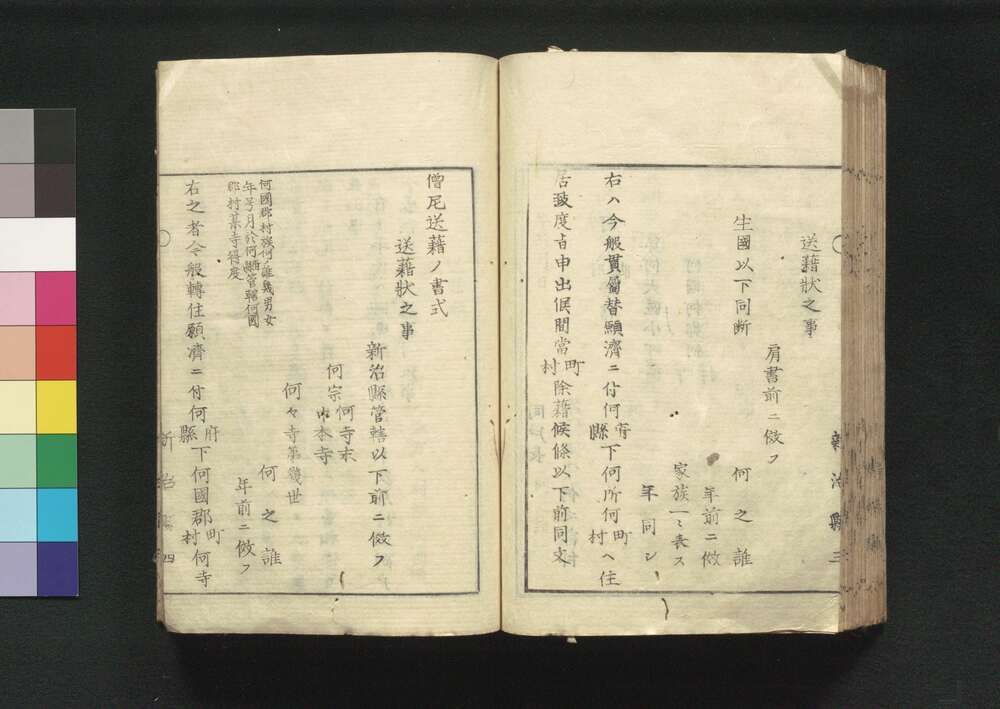 送藉状之事
肩書前ニ傚フ
生國以下同断 何之誰
年前ニ傚
家族一ミ表ス
年同シ
右ハ今般貫屬替願濟ニ付何府縣下何所何町村ヘ住
居致度旨申出候間當町村除藉候條以下前同文
新治縣 三
僧尼送藉ノ書式
送藉状之事
新治縣管轄以下前ニ傚フ
何寺末
何宗
本寺
何々寺第幾世
何國郡村族何ノ誰幾男女
年号月於何縣管轄何國
郡村某寺得度
何之誰
年前ニ傚フ
右之者今般轉住願濟ニ付何府縣下何國郡町村何寺
新治縣 四